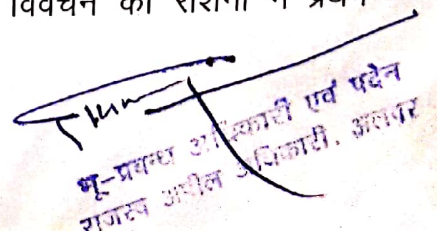 विवेचन की रोशनी में प्रथम
भू-प्रबन्ध अधिकारी एवं पदेन
राजस्व अपील अधिकारी, अलवर